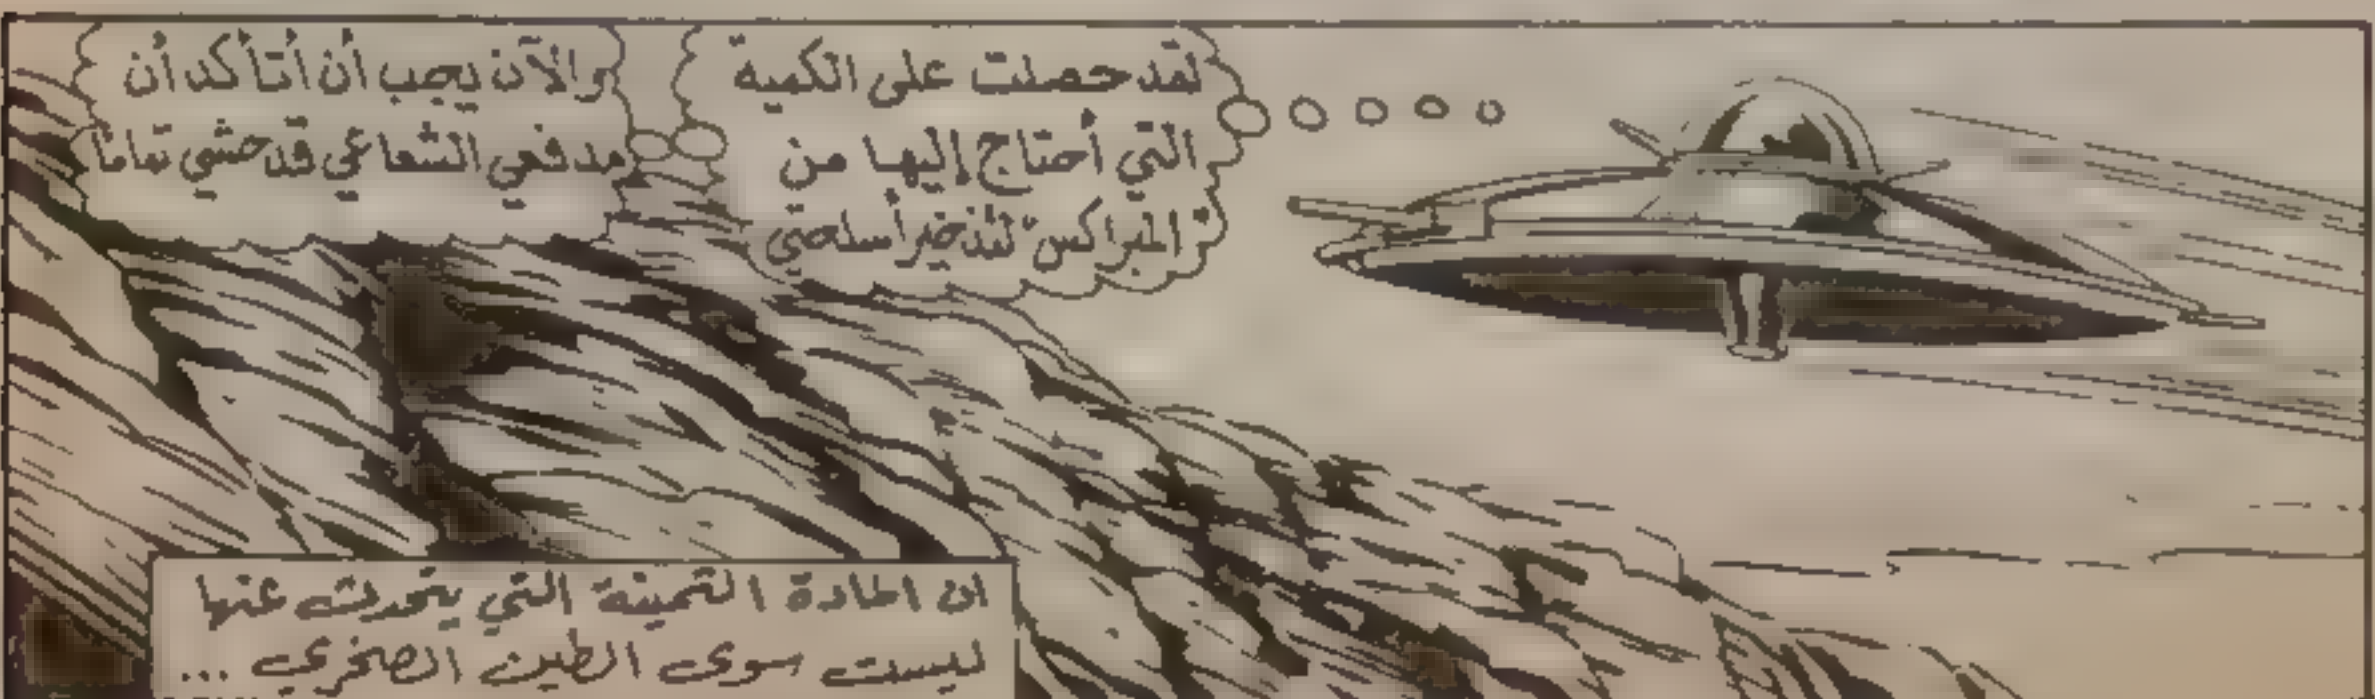 لقد حصلت على الكمية
التي أحتاج إليها من
"المبراكس" لتذخير أسلحتي
والآن يجب أن أتأكد أن
مدفعي الشعاعي قد حشي تماما
ان المادة الثمينة التي يتحدث عنها
ليست سوى الطين الصخري ...